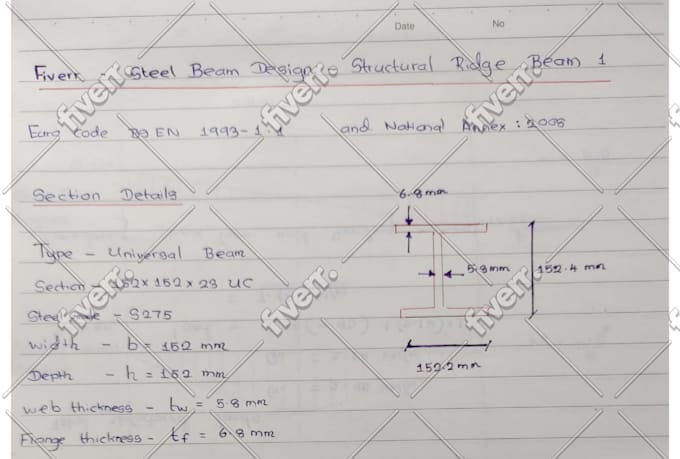 Date No
Fiverr - Steel Beam Design: Structural Ridge Beam 1
Euro code BS EN 1993-1-1 and National Annex : 2008
Section Details
6.8 mm
Type - Universal Beam
5.8 mm 152.4 mm
Section - 152 x 152 x 23 UC
Steel - S275
width - b = 152 mm
152.2 mm
Depth - h = 152 mm
web thickness - tw = 5.8 mm
Flange thickness - tf = 6.8 mm
fiverr.
fiverr.
fiverr.
fiverr.
fiverr.
fiverr.
fiverr.
fiverr.
fiverr.